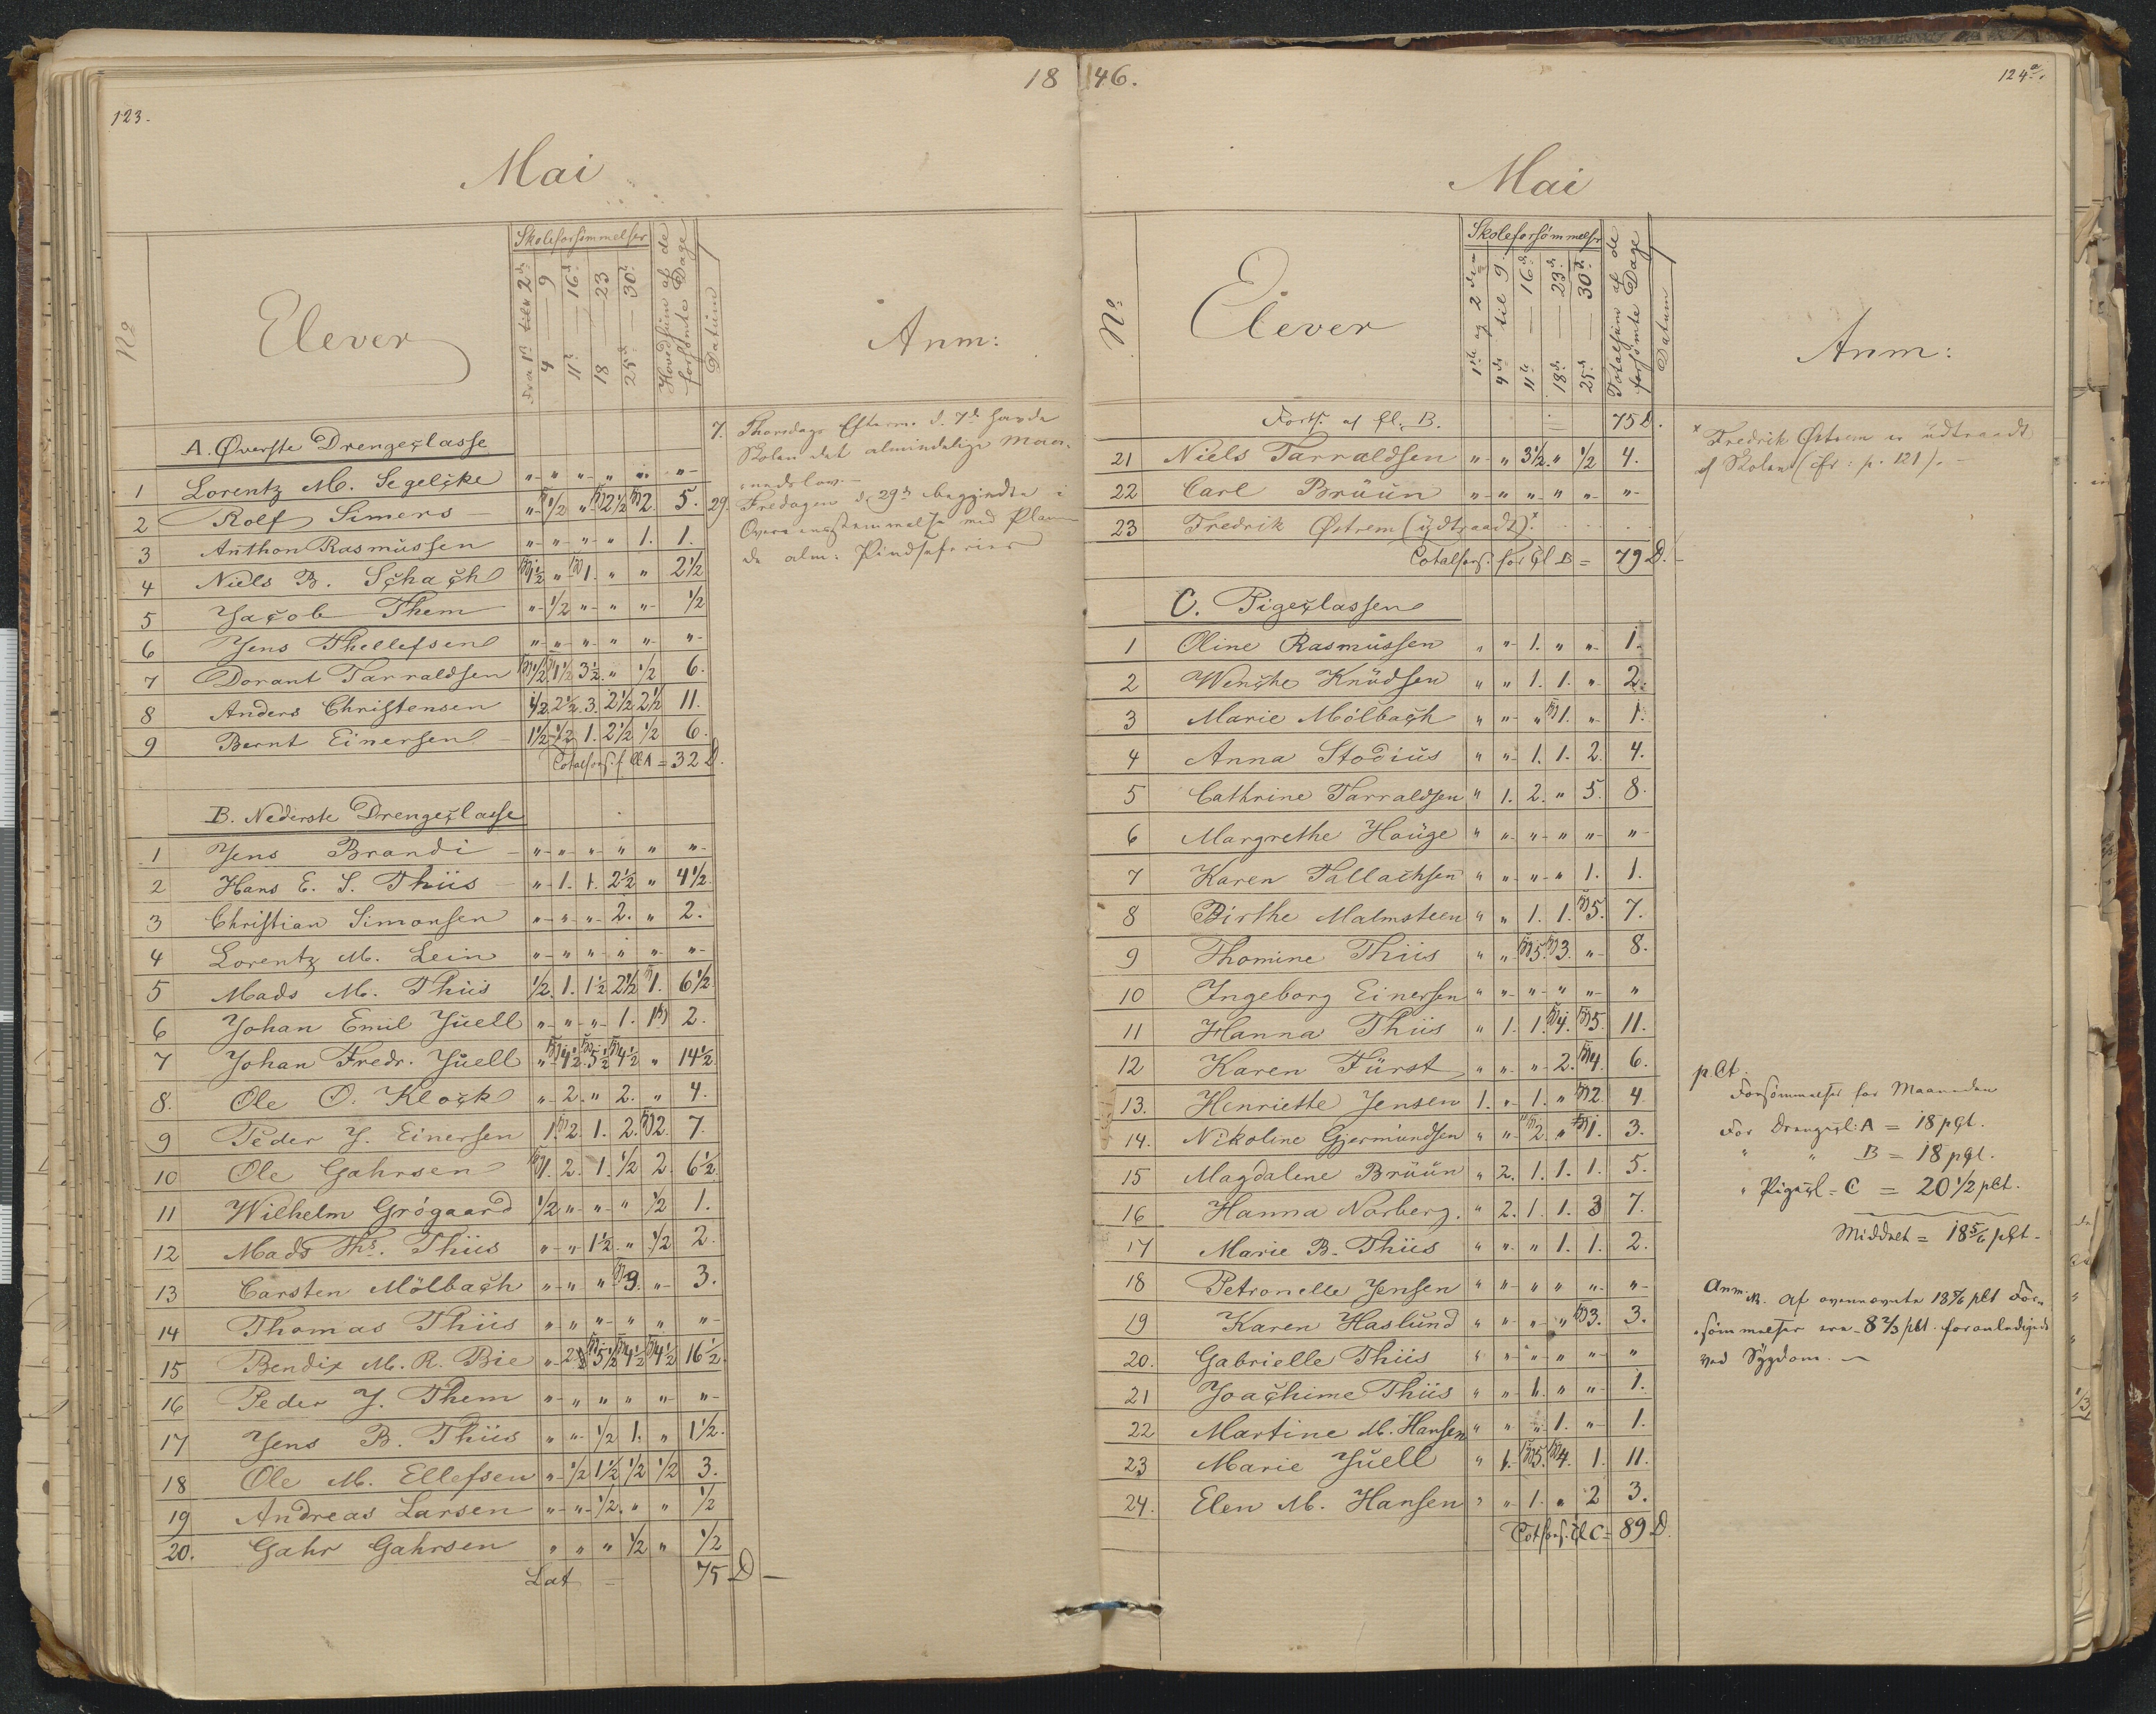 123.
18
Mai
No
Elever
Skoleforsömmelser
Fra 1ste til 2d.
4 — 9
11te — 16d.
18 — 23
25d. — 30te
Hovedsum af de forsömte Dage
Datum
Anm:
A. Øverste Drengeclasse
1 Lorentz M. Segelcke " " " " " "
2 Rolf Simers " 1/2 " 2 1/2 2. 5.
3 Anthon Rasmussen " " " " 1. 1.
4 Niels B. Schach 1 1/2 " 1. " " 2 1/2
5 Jacob Them " 1/2 " " " 1/2
6 Jens Thellefsen " " " " " "
7 Dorant Tarraldsen 1/2 1 1/2 3 1/2 " 1/2 6.
8 Anders Christensen 1/2. 2 1/2. 3. 2 1/2 2 1/2 11.
9 Bernt Einersen 1 1/2 1/2 1. 2 1/2 1/2 6.
Totalfors. f. Cl A = 32 D.
7. Thorsdags Efterm. d. 7de havde
Skolen det almindelige Maa-
nedslov.
29. Fredagen d. 29de begyndte i
Overensstemmelse med Planen
de alm: Pindseferier
B. Nederste Drengeclasse
1 Jens Brandi " " " " " "
2 Hans E. S. Thiis " 1. 1. 2 1/2 " 4 1/2.
3 Christian Simonsen " " " 2. " 2.
4 Lorentz M. Lein " " " " " "
5 Mads M. Thiis 1/2. 1. 1 1/2 2 1/2 1. 6 1/2.
6 Johan Emil Juell " " " 1. 1 2.
7 Johan Fredr. Juell " 4 1/2. 5 1/2 4 1/2 " 14 1/2.
8. Ole O. Klock " 2. " 2. " 4.
9 Peder J. Einersen 1. 2. 1. 2. 2. 7.
10 Ole Gahrsen 1. 2. 1. 1/2 2. 6 1/2.
11 Wilhelm Grögaard 1/2 " " " 1/2 1.
12 Mads Ths. Thiis " " 1 1/2. " 1/2 2.
13 Carsten Mölbach " " " 3. " 3.
14 Thomas Thiis " " " " " "
15 Bendix M. R. Bie " 2 5 1/2 4 1/2 4 1/2 16 1/2.
16 Peder J. Them " " " " " "
17 Jens B. Thiis " " 1/2 1. " 1 1/2.
18 Ole M. Ellefsen " 1/2 1 1/2 1/2 1/2 3.
19 Andreas Larsen " " 1/2. " " 1/2
20. Gahr Gahrsen " " " 1/2 " 1/2
Lat = 75 D
46.
124a.
Mai
No.
Elever
Skoleforsömmelser
1ste og 2den
4de til 9.
11te — 16d.
18d. — 23d.
25d. — 30d.
Totalsum af de forsömte Dage
Datum
Anm:
Forts. af Cl. B. = 75 D.
21 Niels Tarraldsen " " 3 1/2. " 1/2 4.
22 Carl Brüün " " " " " "
23 Fredrik Østrem (udtraadt)x
Totalfors. for Cl B = 79 D.
x Fredrik Østrem er udtraadt
af Skolen (cfr: p. 121).
C. Pigeclassen
1 Oline Rasmussen " " 1. " " 1.
2 Wenche Knudsen " " 1. 1. " 2.
3 Marie Mölbach " " " 1. " 1.
4 Anna Stodius " " 1. 1. 2. 4.
5 Cathrine Tarraldsen " 1. 2. " 5. 8.
6 Margrethe Houge " " " " " "
7 Karen Tallachsen " " " " 1. 1.
8 Birthe Malmsteen " " 1. 1. 5. 7.
9 Thomine Thiis " " 5. 3. " 8.
10 Ingeborg Einersen " " " " " "
11 Hanna Thiis " 1. 1. 4. 5. 11.
12 Karen Fürst " " " 2. 4. 6.
13. Henriette Jensen 1. " 1. " 2. 4
14. Nikoline Gjermundsen " " 2. " 1. 3.
15 Magdalene Brüün " 2. 1. 1. 1. 5.
16 Hanna Norberg. " 2. 1. 1. 3 7.
17 Marie B. Thiis " " " 1. 1. 2.
18 Petronelle Jensen " " " " " "
19 Karen Haslund " " " " 3. 3.
20. Gabrielle Thiis " " " " " "
21 Joachime Thiis " " 1. " " 1.
22 Martine M. Hansen " " " 1. " 1.
23 Marie Juell " 1. 5. 4. 1. 11.
24. Elen M. Hansen " " 1. " 2 3.
Totfors. Cl C = 89 D.
pCt.
Forsömmelser for Maaneden
For Drengecl: A = 18 pCt.
" " B = 18 pCt.
" Pigecl = C = 20 1/2 pCt.
Middelt = 18 5/6 pCt.
Anm. Af ovennævnte 18 5/6 pCt For-
sömmelser ere 8 2/3 pCt. foranlediget
ved Sygdom.